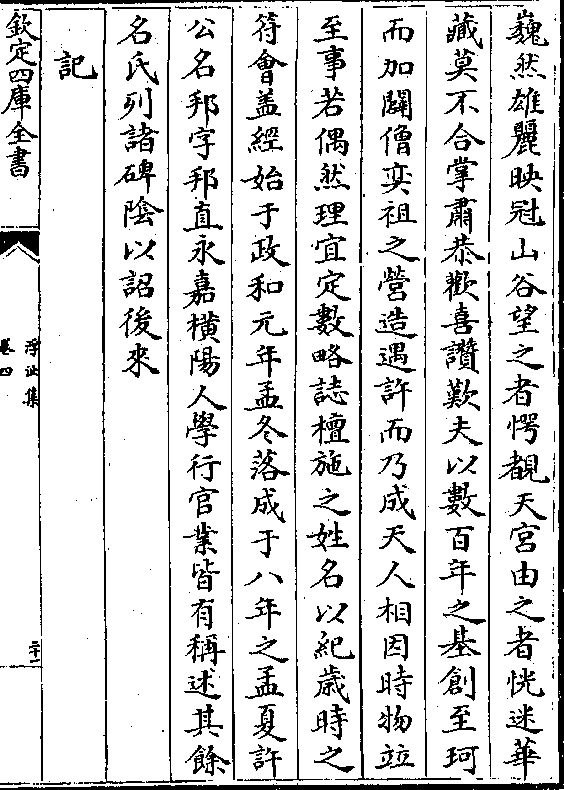 巍然雄麗映冠山谷望之者愕覩天宮由之者恍迷華
藏莫不合掌肅恭歡喜讚歎夫以數百年之基創至珂
而加闢僧奕祖之營造遇許而乃成天人相因時物竝
至事若偶然理宜定數略誌檀施之姓名以紀歲時之
符會盖經始于政和元年孟冬落成于八年之孟夏許
公名邦字邦直永嘉橫陽人學行官業皆有稱述其餘
名氏列諸碑陰以詔後來
記
欽定四庫全書
浮沚集
卷四